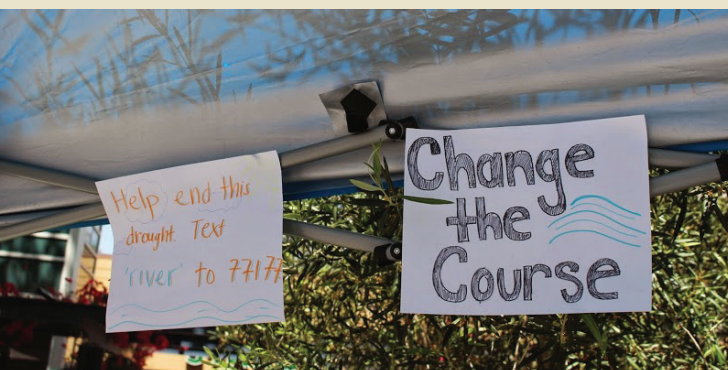 Help end this
drought. Text
'river' to 77177
Change
the
Course